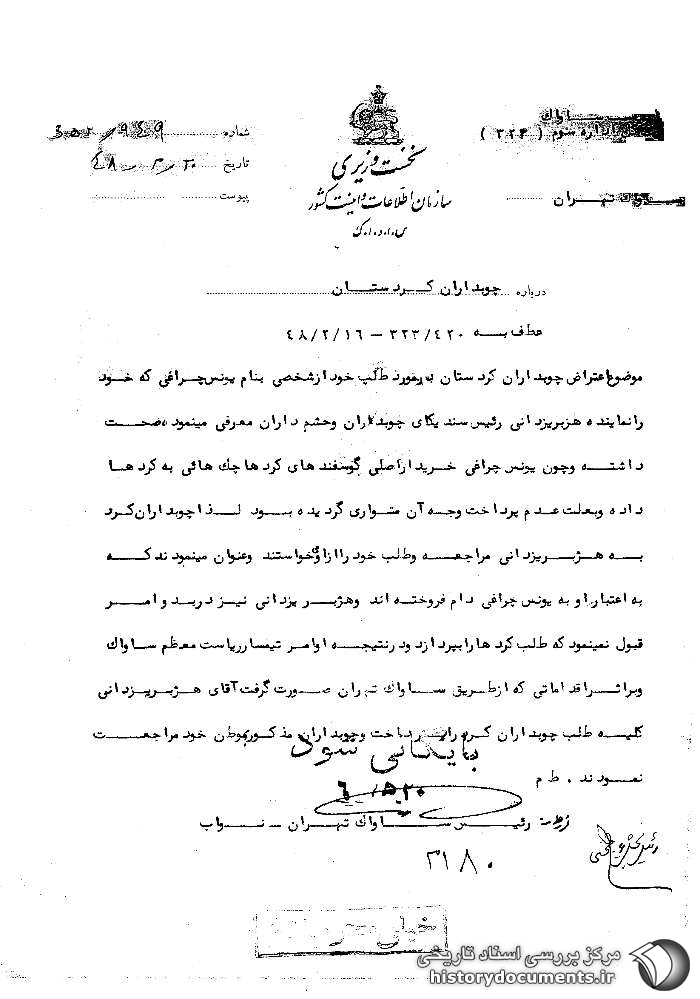 ساواك
اداره سوم ( ۳۲۳ )
ساواك تهران
نخست وزیری
سازمان اطلاعات و امنیت کشور
س.ا.و.ا.ک
شماره
تاریخ
پیوست
درباره چوبداران کردستان
عطف به ۳۲۳/٤۲۰ – ٤۸/۲/۱۶
موضوع اعتراض چوبداران کردستان به مورد طلب خود از شخصی بنام یونس چراغی که خود
را نماینده هژبر یزدانی رئیس سندیکای چوبداران وحشم داران معرفی مینموده صحت
داشته وچون یونس چراغی خریدار اصلی گوسفندهای کردها چك هائی به کردها
داده وبعلت عدم پرداخت وجه آن متواری گردیده بود لذا چوبداران کرد
به هژبر یزدانی مراجعه وطلب خود را از او میخواستند وعنوان مینمودند که
به اعتبار او به یونس چراغی دام فروخته اند وهژبر یزدانی نیز در بدو امر
قبول نمینمود که طلب کردها را بپردازد ودر نتیجه اوامر تیمسار ریاست معظم ساواك
وبر اثر اقداماتی که از طریق ساواك تهران صورت گرفت آقای هژبر یزدانی
کلیه طلب چوبداران کرد را پرداخت وچوبداران مذکور بموطن خود مراجعت
نمودند . ط م
بایگانی شود
رئیس ساواك تهران – نواب
۳۱۸۰
خیلی محرمانه
مرکز بررسی اسناد تاریخی
historydocuments.ir